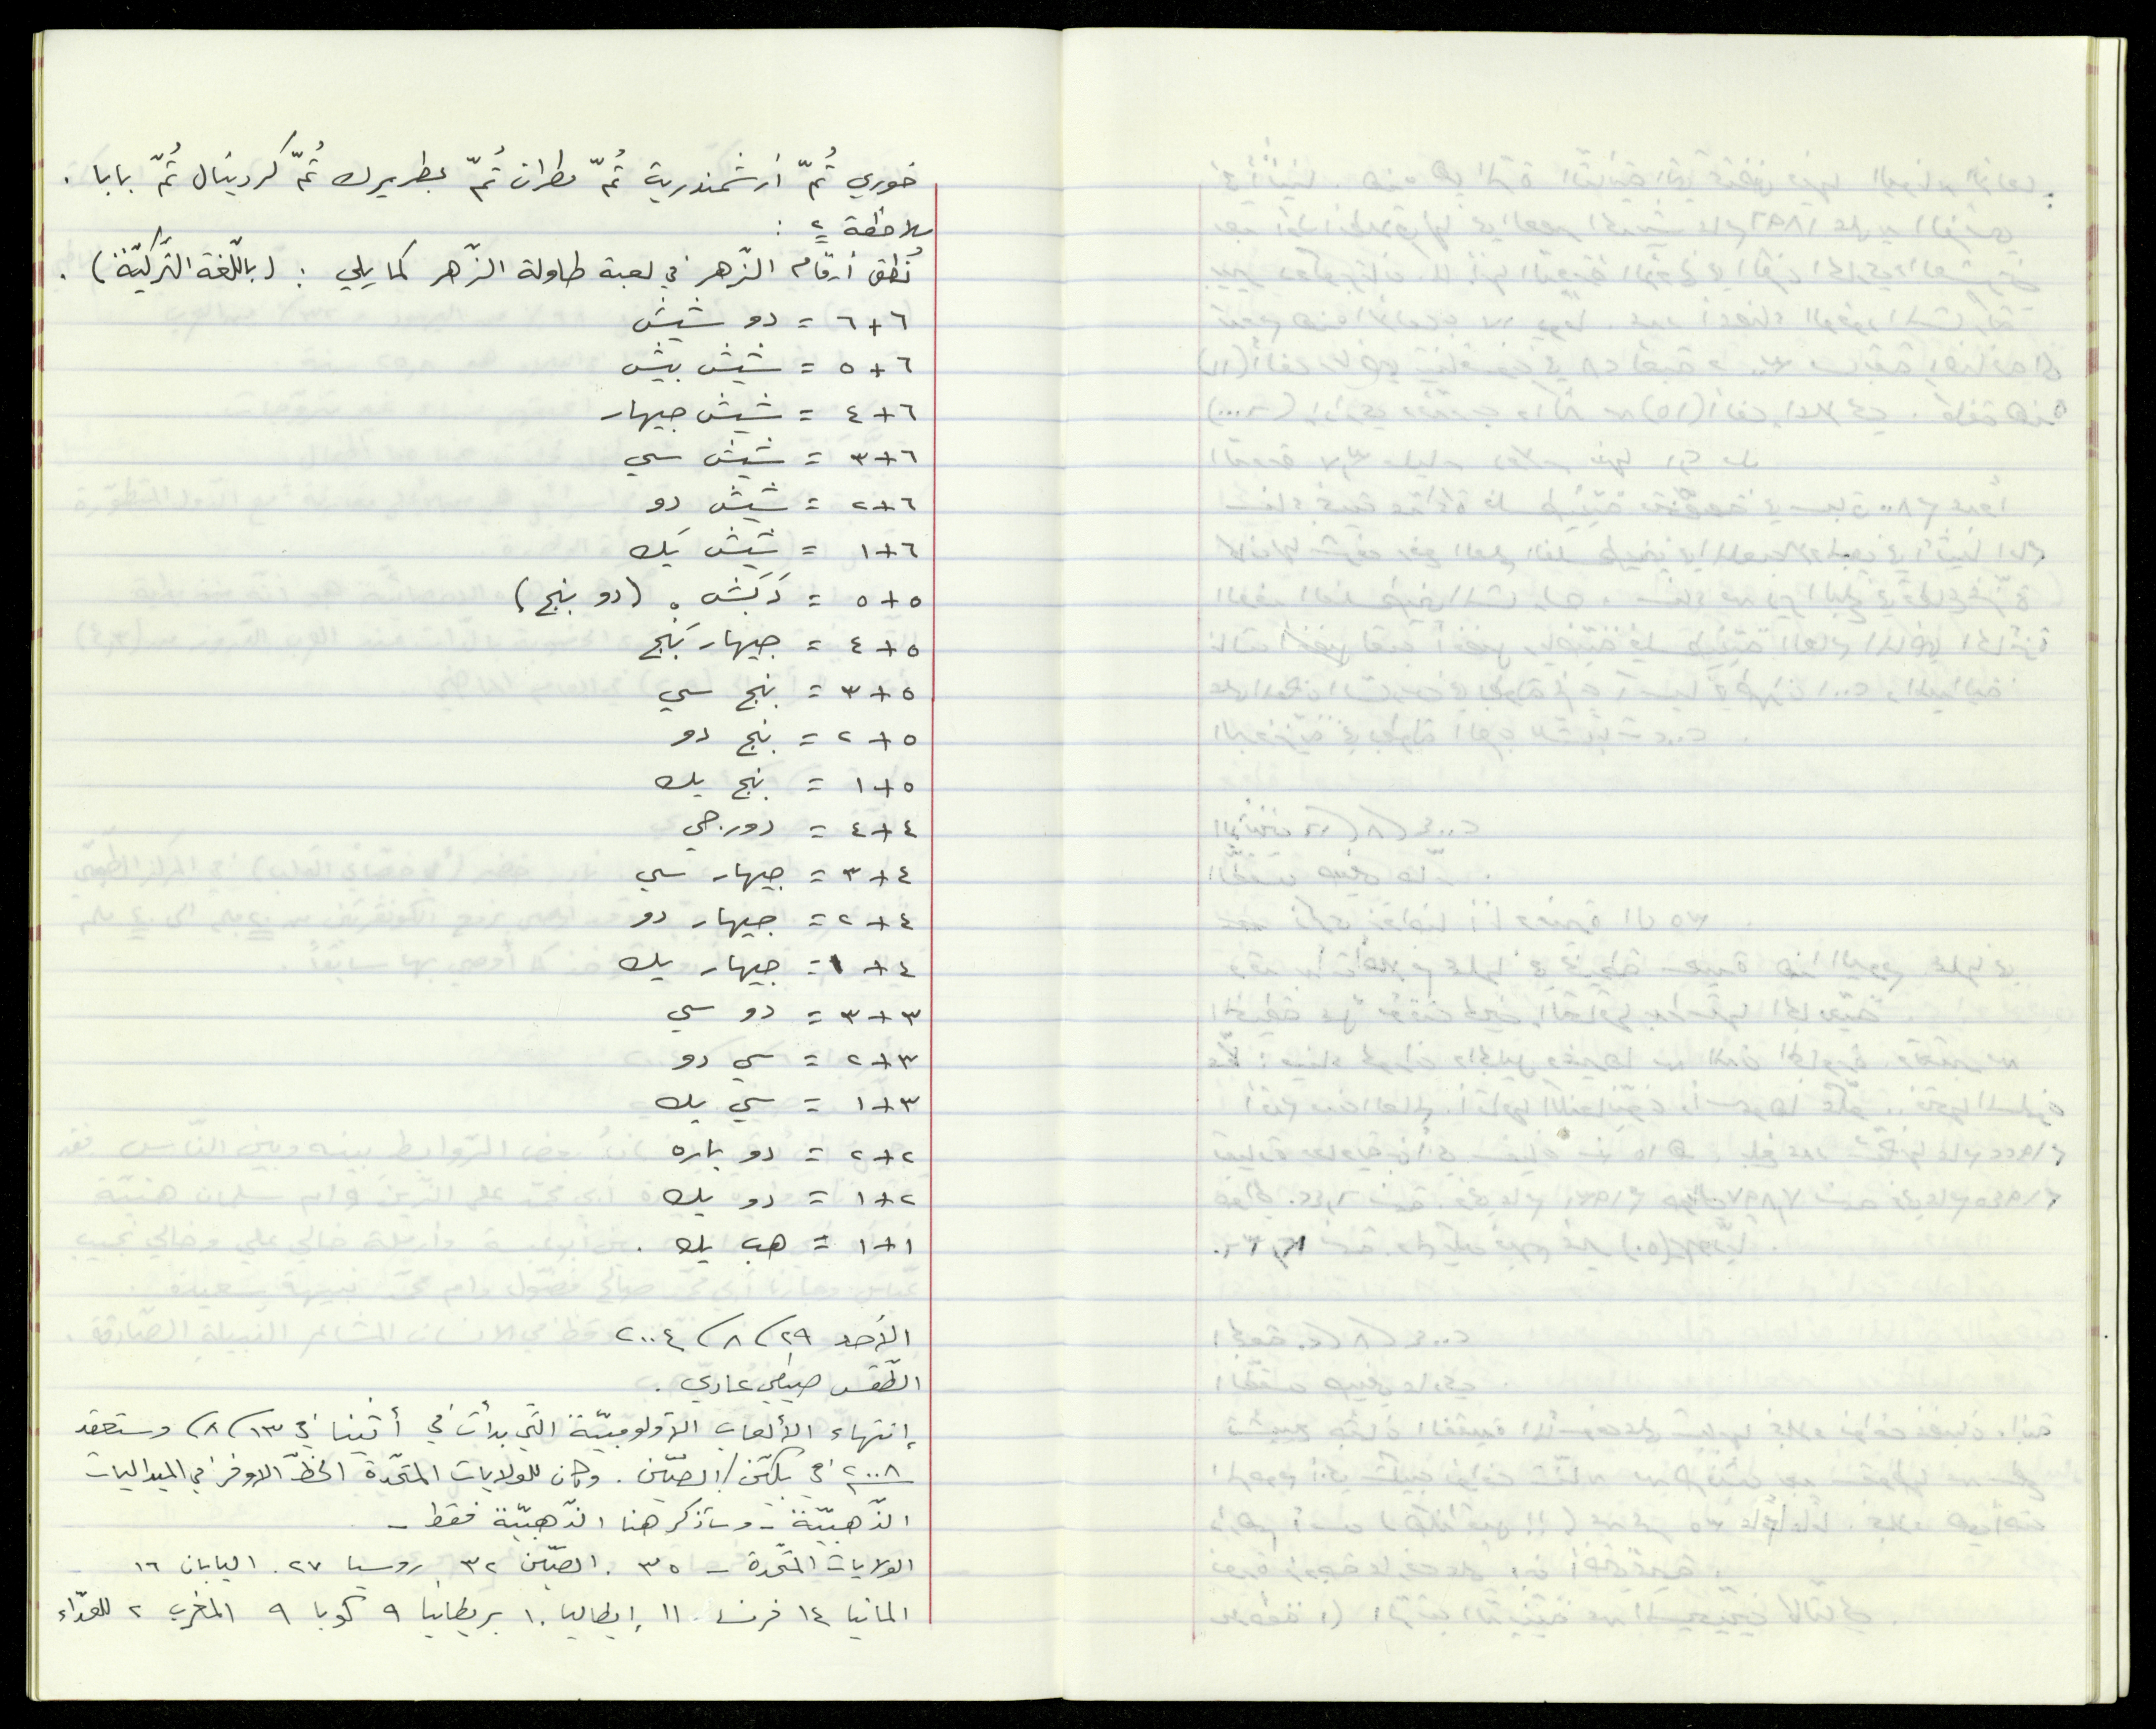 خوري ثُمّ أرشمندرية ثُمّ مطران ثُمّ بطريرك ثُمّ كردينال ثُمّ بابا .
ملاحظة ٤ :
نُطق أرقام الزّهر في لعبة طاولة الزّهر كما يلي : (باللّغة التّركيّة) .
٦+٦ = دو شيش
٦+٥ = شيش بيش
٦+٤ = شيش جيهار
٦+٣ = شيش سي
٦+٢ = شيش دو
٦+١ = شيش يَك
٥+٥ = دَبَش . (دو بنج)
٥+٤ = جيهار بَنج
٥+٣ = بنج سي
٥+٢ = بنج دو
٥+١ = بنج يك
٤+٤ = دورجي
٤+٣ = جيهار سي
٤+٢ = جيهار دو
٤+١ = جيهار يك
٣+٣ = دو سي
٣+٢ = سي دو
٣+١ = سي يك
٢+٢ = دو باره
٢+١ = دو يك
١+١ = هب يك .
الأحد ٢٩/٨/٢٠٠٤
الطّقس صيفي عاديّ .
إنتهاء الألعاب الاولومبيّة الّتي بدأت في أثينا في ١٣/٨/ وستعقد
٢٠٠٨ في بكّين/الصّين . وكان للولايات المتّحدة الحظّ الاوفر في الميداليات
الذّهبيّة - وسأذكر هنا الذّهبيّة فقط -
الولايات المتّحدة - ٣٥ . الصّين ٣٢ . روسيا ٢٧ . اليابان ١٦
المانيا ١٤ فرنسا ١١ إيطاليا ١٠ بريطانيا ٩ كوبا ٩ المغرب ٢ للعدّاء